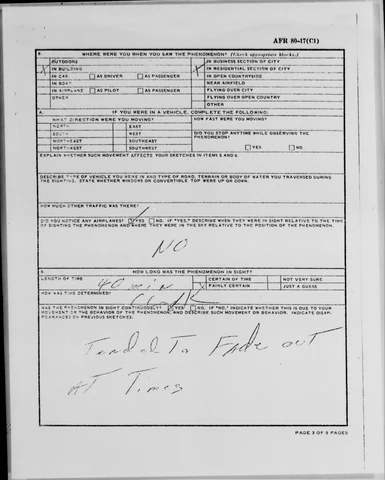 AFR 80-17(C1)
8. WHERE WERE YOU WHEN YOU SAW THE PHENOMENON? (Check appropriate blocks.)
OUTDOORS IN BUSINESS SECTION OF CITY
X IN BUILDING X IN RESIDENTIAL SECTION OF CITY
IN CAR AS DRIVER AS PASSENGER IN OPEN COUNTRYSIDE
IN BOAT NEAR AIRFIELD
IN AIRPLANE AS PILOT AS PASSENGER FLYING OVER CITY
OTHER FLYING OVER OPEN COUNTRY
OTHER
A. IF YOU WERE IN A VEHICLE, COMPLETE THE FOLLOWING:
WHAT DIRECTION WERE YOU MOVING? HOW FAST WERE YOU MOVING?
NORTH EAST
SOUTH WEST DID YOU STOP ANYTIME WHILE OBSERVING THE
NORTHEAST SOUTHEAST PHENOMENON?
NORTHWEST SOUTHWEST YES NO
EXPLAIN WHETHER SUCH MOVEMENT AFFECTS YOUR SKETCHES IN ITEMS 5 AND 6.
DESCRIBE TYPE OF VEHICLE YOU WERE IN AND TYPE OF ROAD, TERRAIN OR BODY OF WATER YOU TRAVERSED DURING
THE SIGHTING. STATE WHETHER WINDOWS OR CONVERTIBLE TOP WERE UP OR DOWN.
HOW MUCH OTHER TRAFFIC WAS THERE?
DID YOU NOTICE ANY AIRPLANES? YES NO. IF "YES," DESCRIBE WHEN THEY WERE IN SIGHT RELATIVE TO THE TIME
OF SIGHTING THE PHENOMENON AND WHERE THEY WERE IN THE SKY RELATIVE TO THE POSITION OF THE PHENOMENON.
NO
9. HOW LONG WAS THE PHENOMENON IN SIGHT?
LENGTH OF TIME 40 min CERTAIN OF TIME NOT VERY SURE
X FAIRLY CERTAIN JUST A GUESS
HOW WAS TIME DETERMINED? Clock
WAS THE PHENOMENON IN SIGHT CONTINUOUSLY? YES NO. IF "NO," INDICATE WHETHER THIS IS DUE TO YOUR
MOVEMENT OR THE BEHAVIOR OF THE PHENOMENON, AND DESCRIBE SUCH MOVEMENT OR BEHAVIOR. INDICATE DISAP-
PEARANCES ON PREVIOUS SKETCHES.
Tended To Fade out
AT Times
PAGE 3 OF 9 PAGES